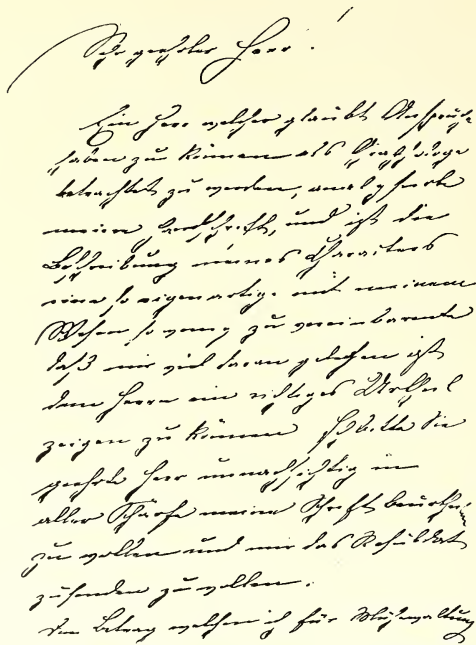 Sehr geehrter Herr!
Ein Herr welcher glaubt Anspruch
haben zu können als
betrachtet zu werden, analysierte
meine Handschrift, und ist die
Beschreibung meines Charakters
eine so eigenartige mit meinem
Wesen so wenig zu vereinbarende
daß mir viel daran gelegen ist
dem Herrn ein richtiges Urtheil
zeigen zu können Ich bitte Sie
geehrter Herr unnachsichtig in
aller Schärfe meine Schrift beurthei
zu wollen und mir das Resultat
zusenden zu wollen.
Den Betrag welchen ich für Mühewaltung